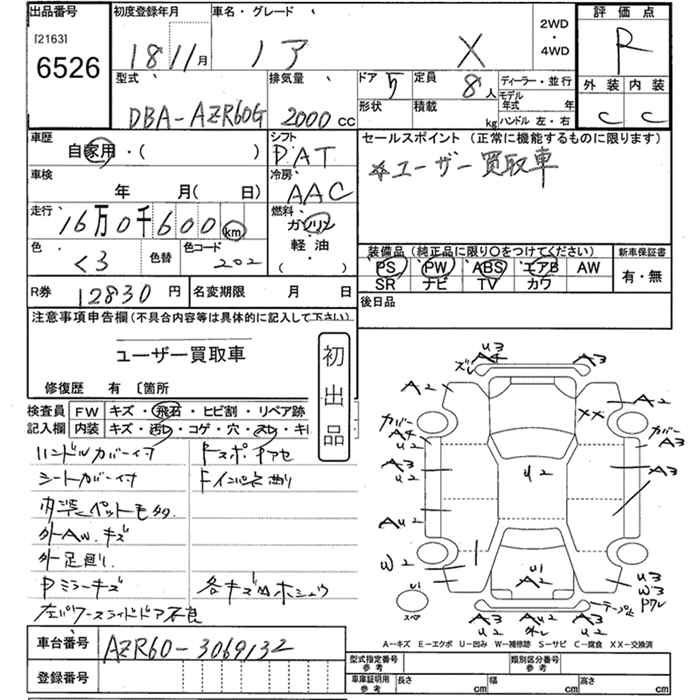 出品番号
[2163]
6526
初度登録年月
18 11月
車名・グレード
ノア X
2WD
・
4WD
評価点
R
外装 内装
C C
型式
DBA-AZR60G
排気量
2000 CC
ドア 5
形状
定員 8人
積載 kg
ディーラー・並行
モデル年式 年
ハンドル 左・右
車歴
自家用・( )
車検
年 月( 日)
シフト
冷房
AAC
走行
16万0千600km
燃料
ガソリン
軽油
( )
色
くろ
色替
色コード
202
R券 12830円
名変期限 月 日
セールスポイント(正常に機能するものに限ります)
※ユーザー買取車
装備品(純正品に限り〇をつけてください)
PS PW ABS エアB AW
SR ナビ TV カワ
新車保証書
有・無
後日品
注意事項申告欄(不具合内容等は具体的に記入して下さい)
ユーザー買取車
修復歴 有 〔箇所
初出品
検査員
記入欄
FW キズ・飛石・ヒビ割・リペア跡
内装 キズ・汚れ・コゲ・穴・スレ・キ
ハンドルカバー付
シートカバー付
内装ペットモタ
外AW.キズ
外足廻り.
Pミラーキズ
左パワースライドドア不良
Fインパネ曲り
車台番号 AZR60-3069132
登録番号
U3
A4
ズレ
A3
A2
A2
XX
カバー
A4
U2
カバー
A3
A3
U2
A3
U2
AU2
W2
U1
A2
U1
スペア
U3
W3
Pワレ
A3
U2
AU2
A3
U2
A-キズ E-エクボ U-凹み W-補修跡 S-サビ C-腐食 XX-交換済
型式指定番号
参考
類別区分番号
参考
車庫証明用
参考
長さ cm
幅 cm
高さ cm